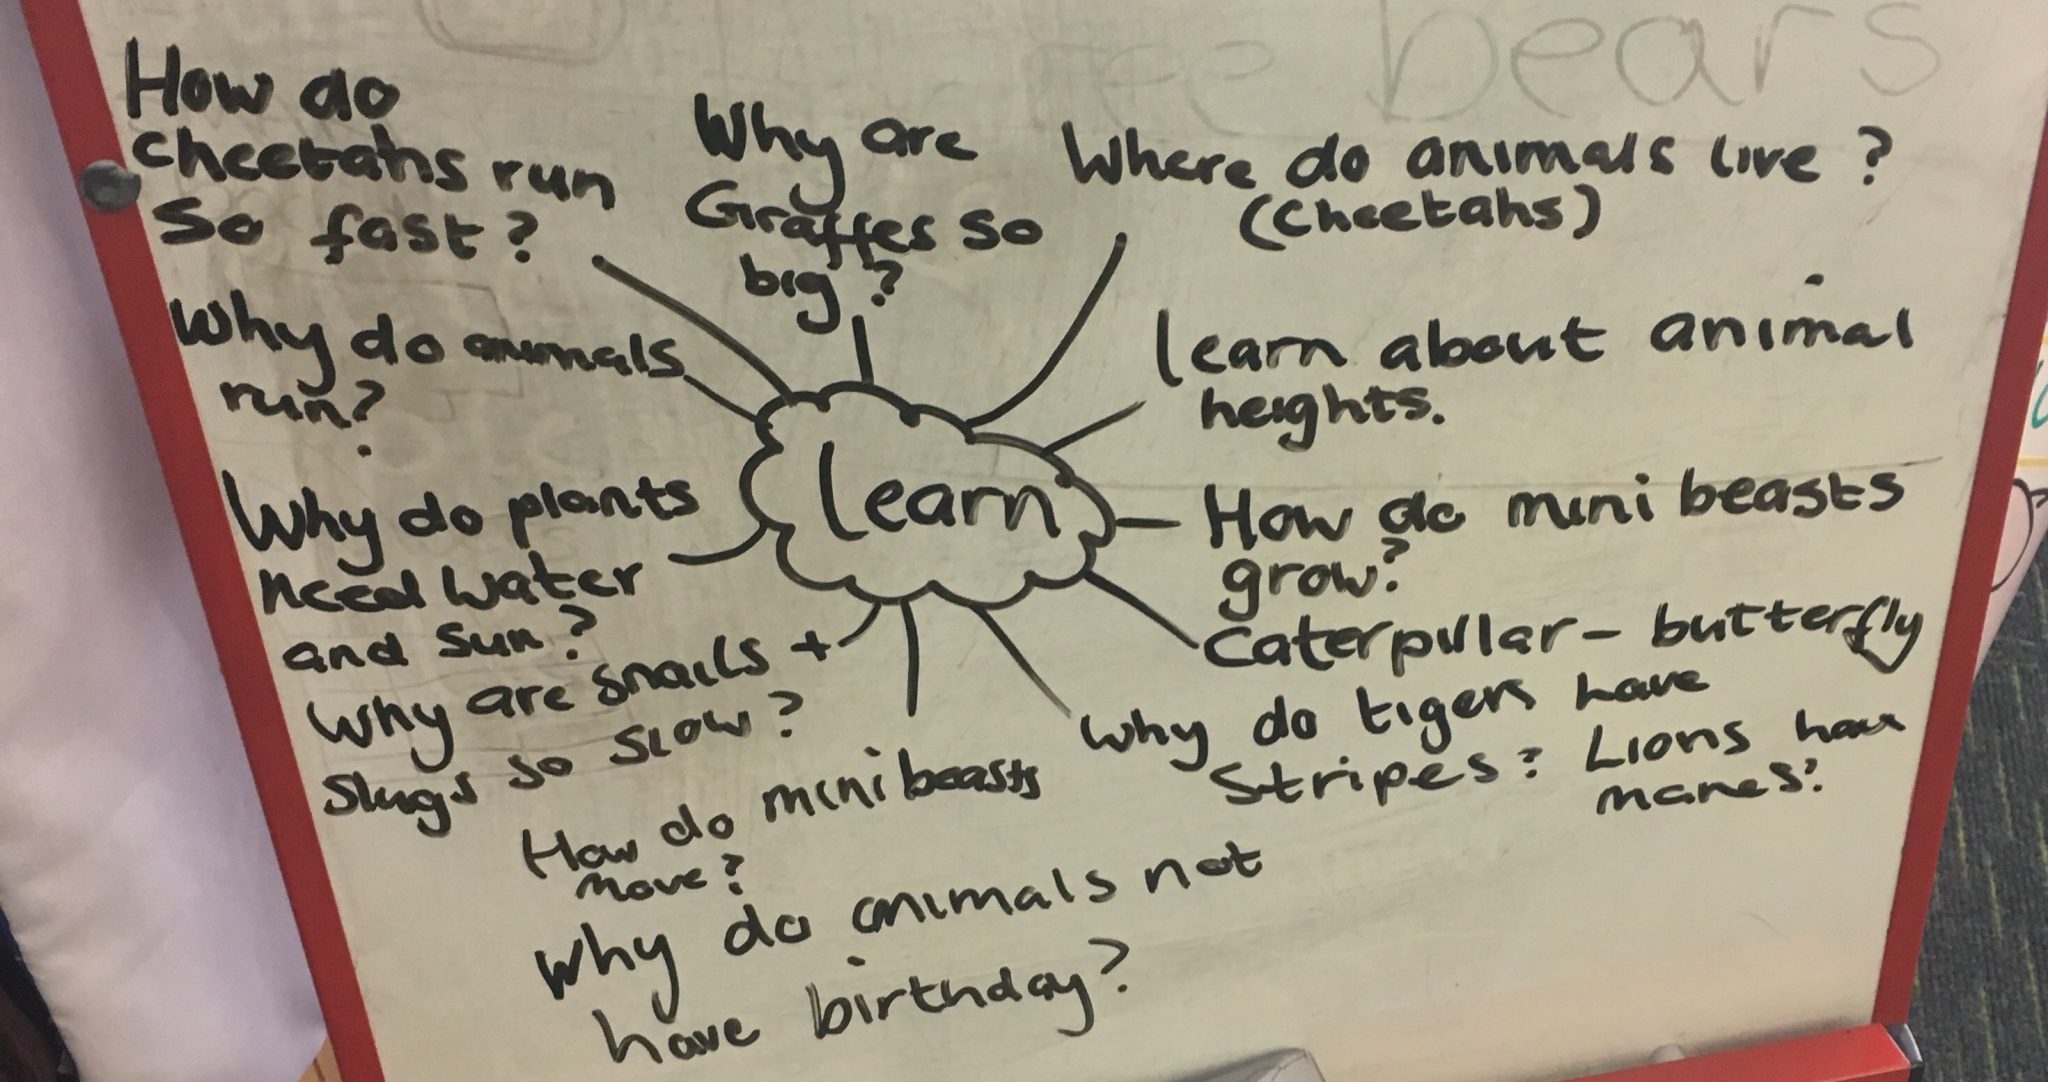 bears
How do
cheetahs run
so fast?
Why are
Giraffes so
big?
Where do animals live?
(cheetahs)
Why do animals
run?
learn about animal
heights.
learn
Why do plants
need water
and sun?
How do mini beasts
grow?
Caterpillar - butterfly
Why are snails +
slugs so slow?
Why do tigers have
stripes? Lions have
manes?
How do mini beasts
move?
Why do animals not
have birthday?